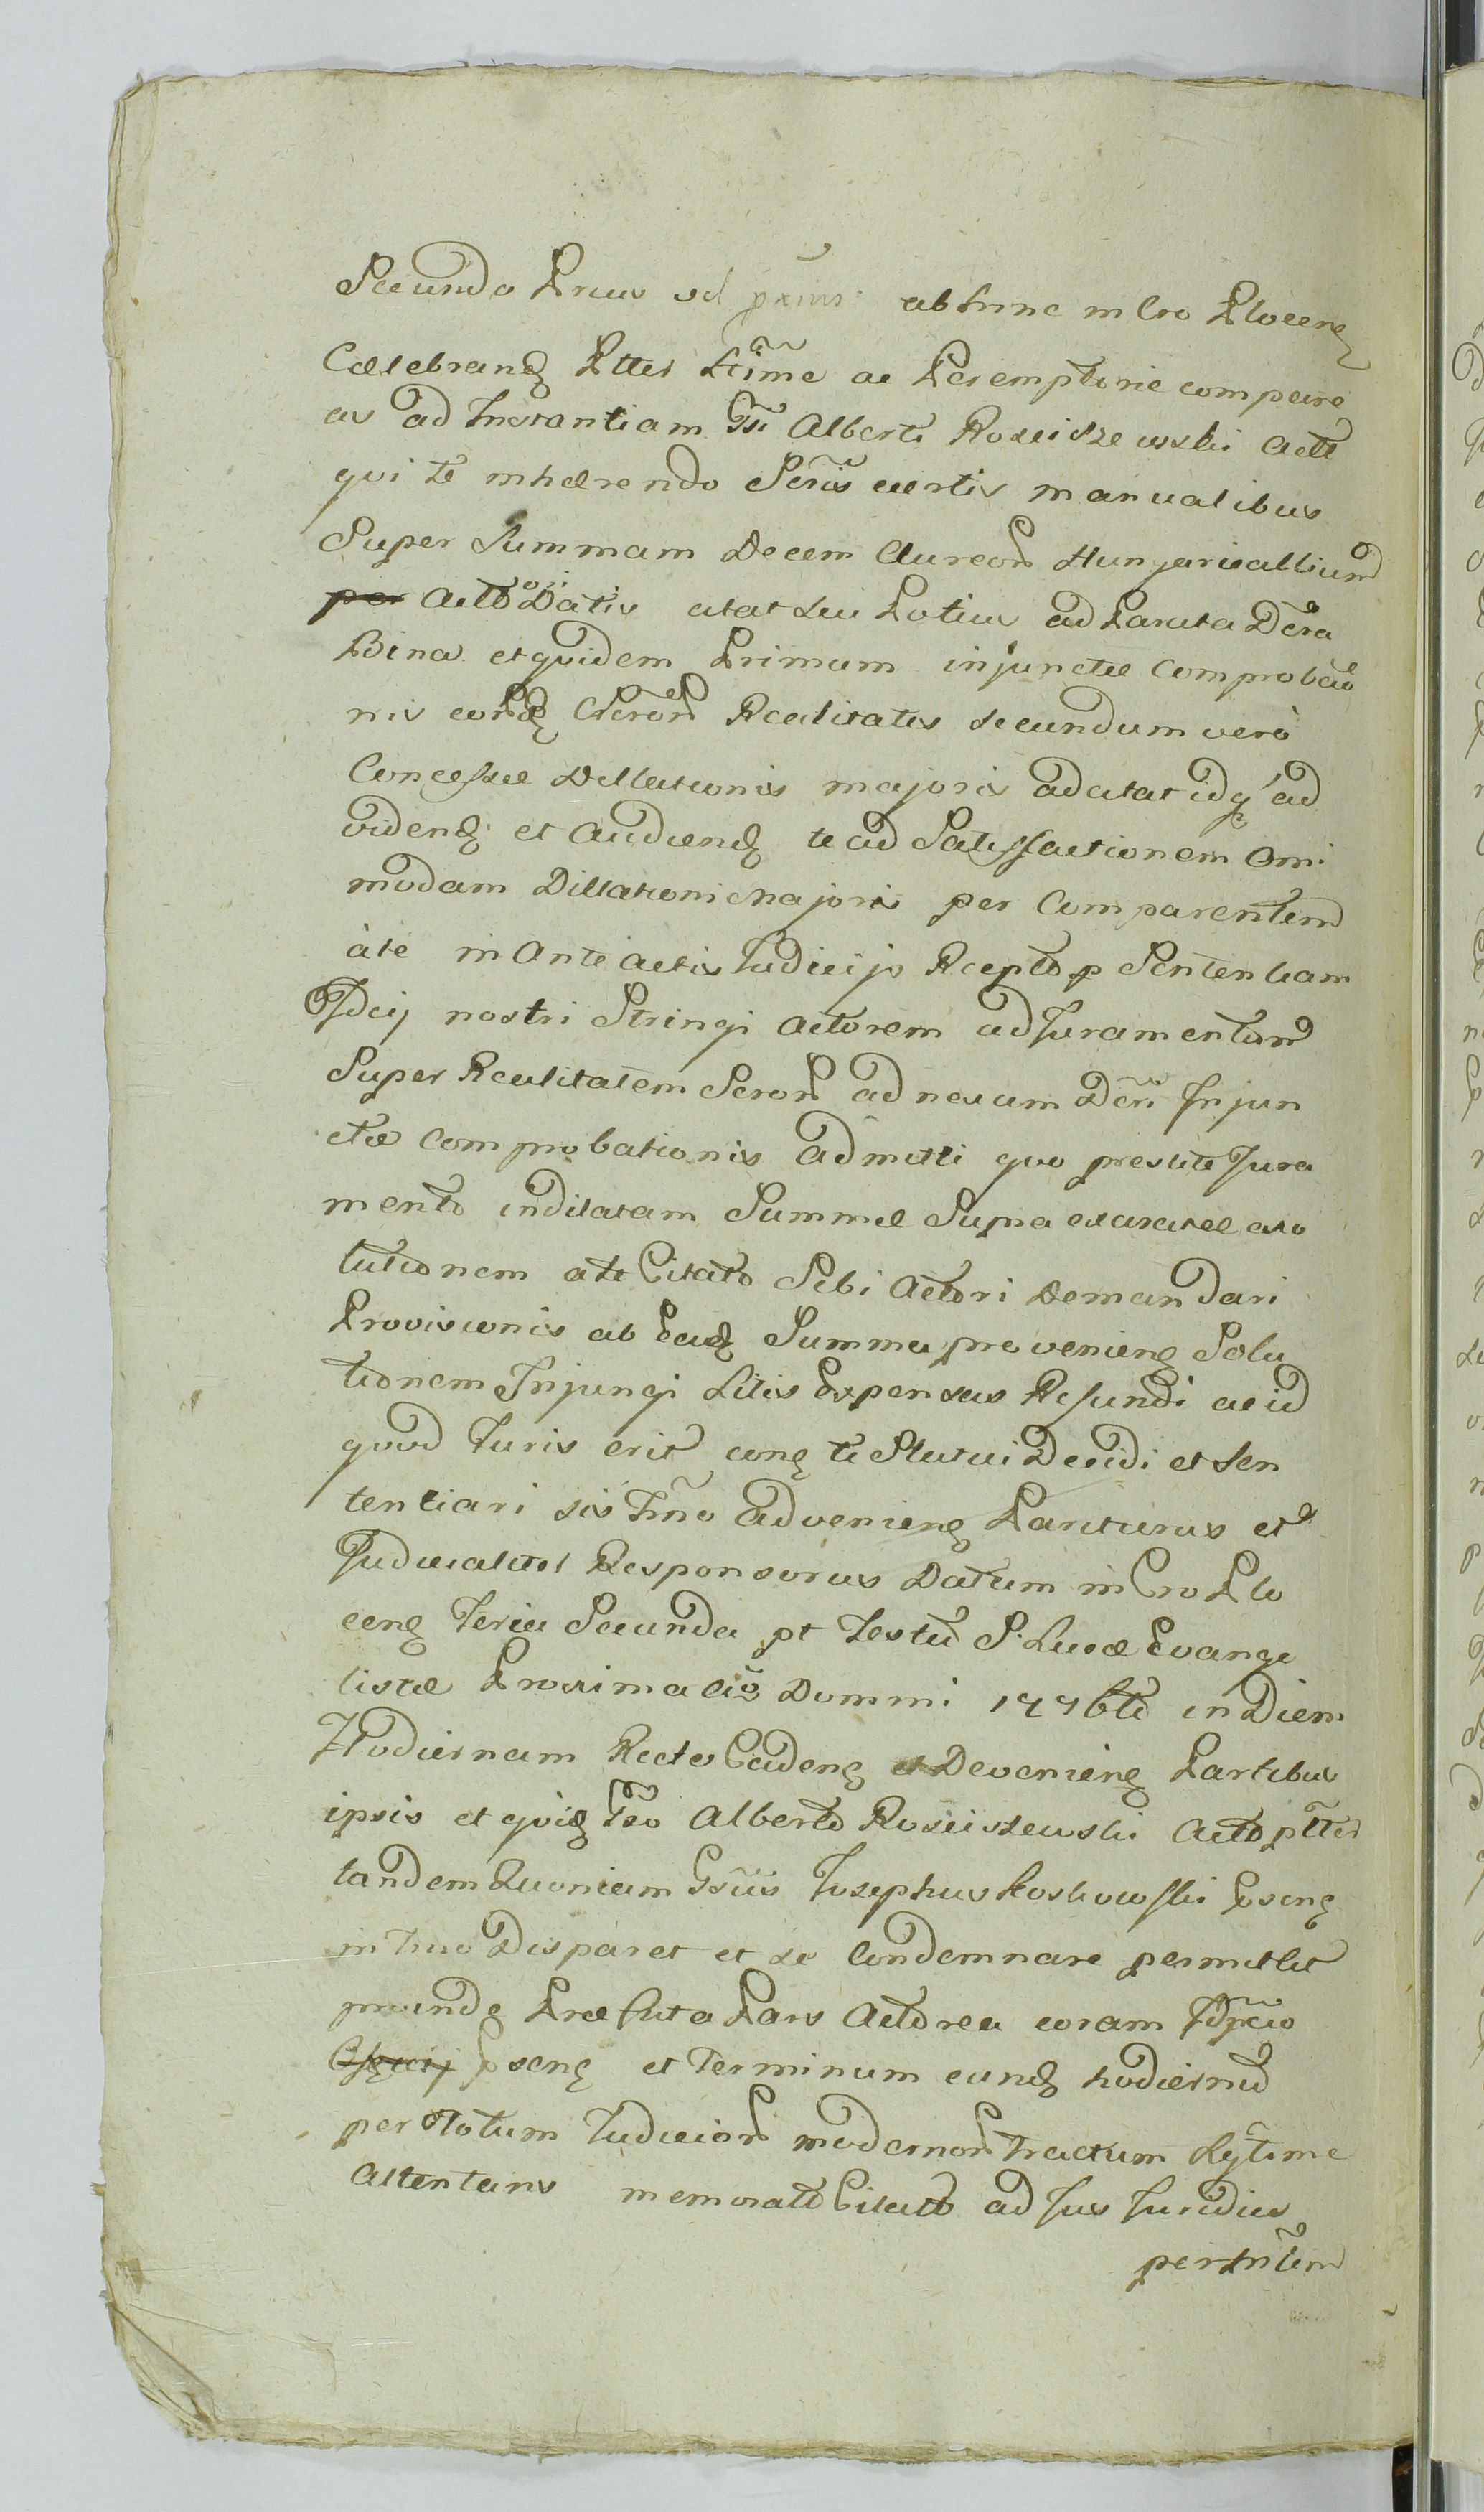 Secunda Prius vel prius abhinc in Cro Plocen
Celebrand Ptter Ltime ac Peremptorie compare
as ad Instantiam Gsi Alberti Rosciszewski Act
qui te inhærendo Scris certis manualibus
Super Summam Decem Aureor Hungaricallium
per Actoori Datis citat seu Potius ad Parata Dcra
Bina et quidem Primum injunctæ Comproba͠o
nis eornd Scror Realitatis secundum verò
Concessæ Dillationis majoris adcitat idq ad
vidend et Audiend te ad Satisfactionem Omi
modam Dillationi Majoris per Comparentem
àte in Ante Actis Judicijs Recepto p Sententiam
Jdcij nostri Stringi Actorem ad Juramentum
Super Realitatem Scror ad nexum Dcri Injun
ctæ Comprobationis Admitti quo prestito Jura
mento indilatam Summæ Supra exaratæ exo
lutionem a te Citato Sibi Actori Demandari
Provisionis ab Ead Summa provenien Solu
tionem Injungi Litis Expensas Refundi ac id
quod Juris erit cong te Statui Decidi et Sen
tentiari sis Tmo Advenien Pariturus et
Judicialiter Responsurus Datum in Cro Plo
cen Feria Secunda pt Festu S. Lucæ Evange
listæ Proxima Ao Domini 1776to in Diem
Hodiernam Recte Caden et Devenien Partibus
ipsis et quid Gso Alberto Rosciszewski Acto ptter
tandem Quoniam Gsus Josephus Koskowski Psens
in Tmo Disparet et se Condemnare permittit
proinde Præfata Pars Actorea coram Jdicio
Psens et Terminum eund hodiernu
per Totum Judicior modernor Tractum Lgtime
Attentans memorato Citato ad Jus Juridice
pertntem